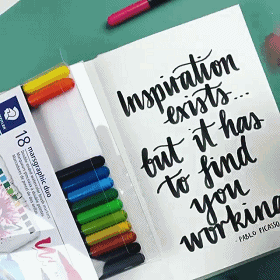 STAEDTLER
18 marsgraphic duo
Inspiration
exists...
but it has
to find
you
working
- PABLO PICASSO